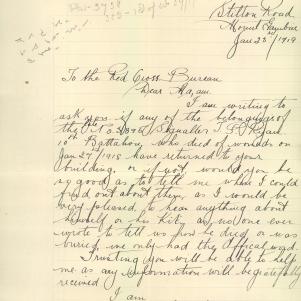 Stitton Road
Mount Gambier
Jan 23rd / 1919
To the Red Cross Bureau
Dear Madam.
I am writing to
ask you if any of the belongings of
the late No Signaller
10th Battalion, who died of wounds on
Jan 27th 1918 have returned to your
building, or if not would you be
so good as to tell me when I could
find out about them, as I would be
very pleased to hear anything about
himself or his kit, as no one ever
wrote to tell us how he died or was
buried, we only had the official word.
Trusting you will be able to help
me as any information will be gratefully
received
I am